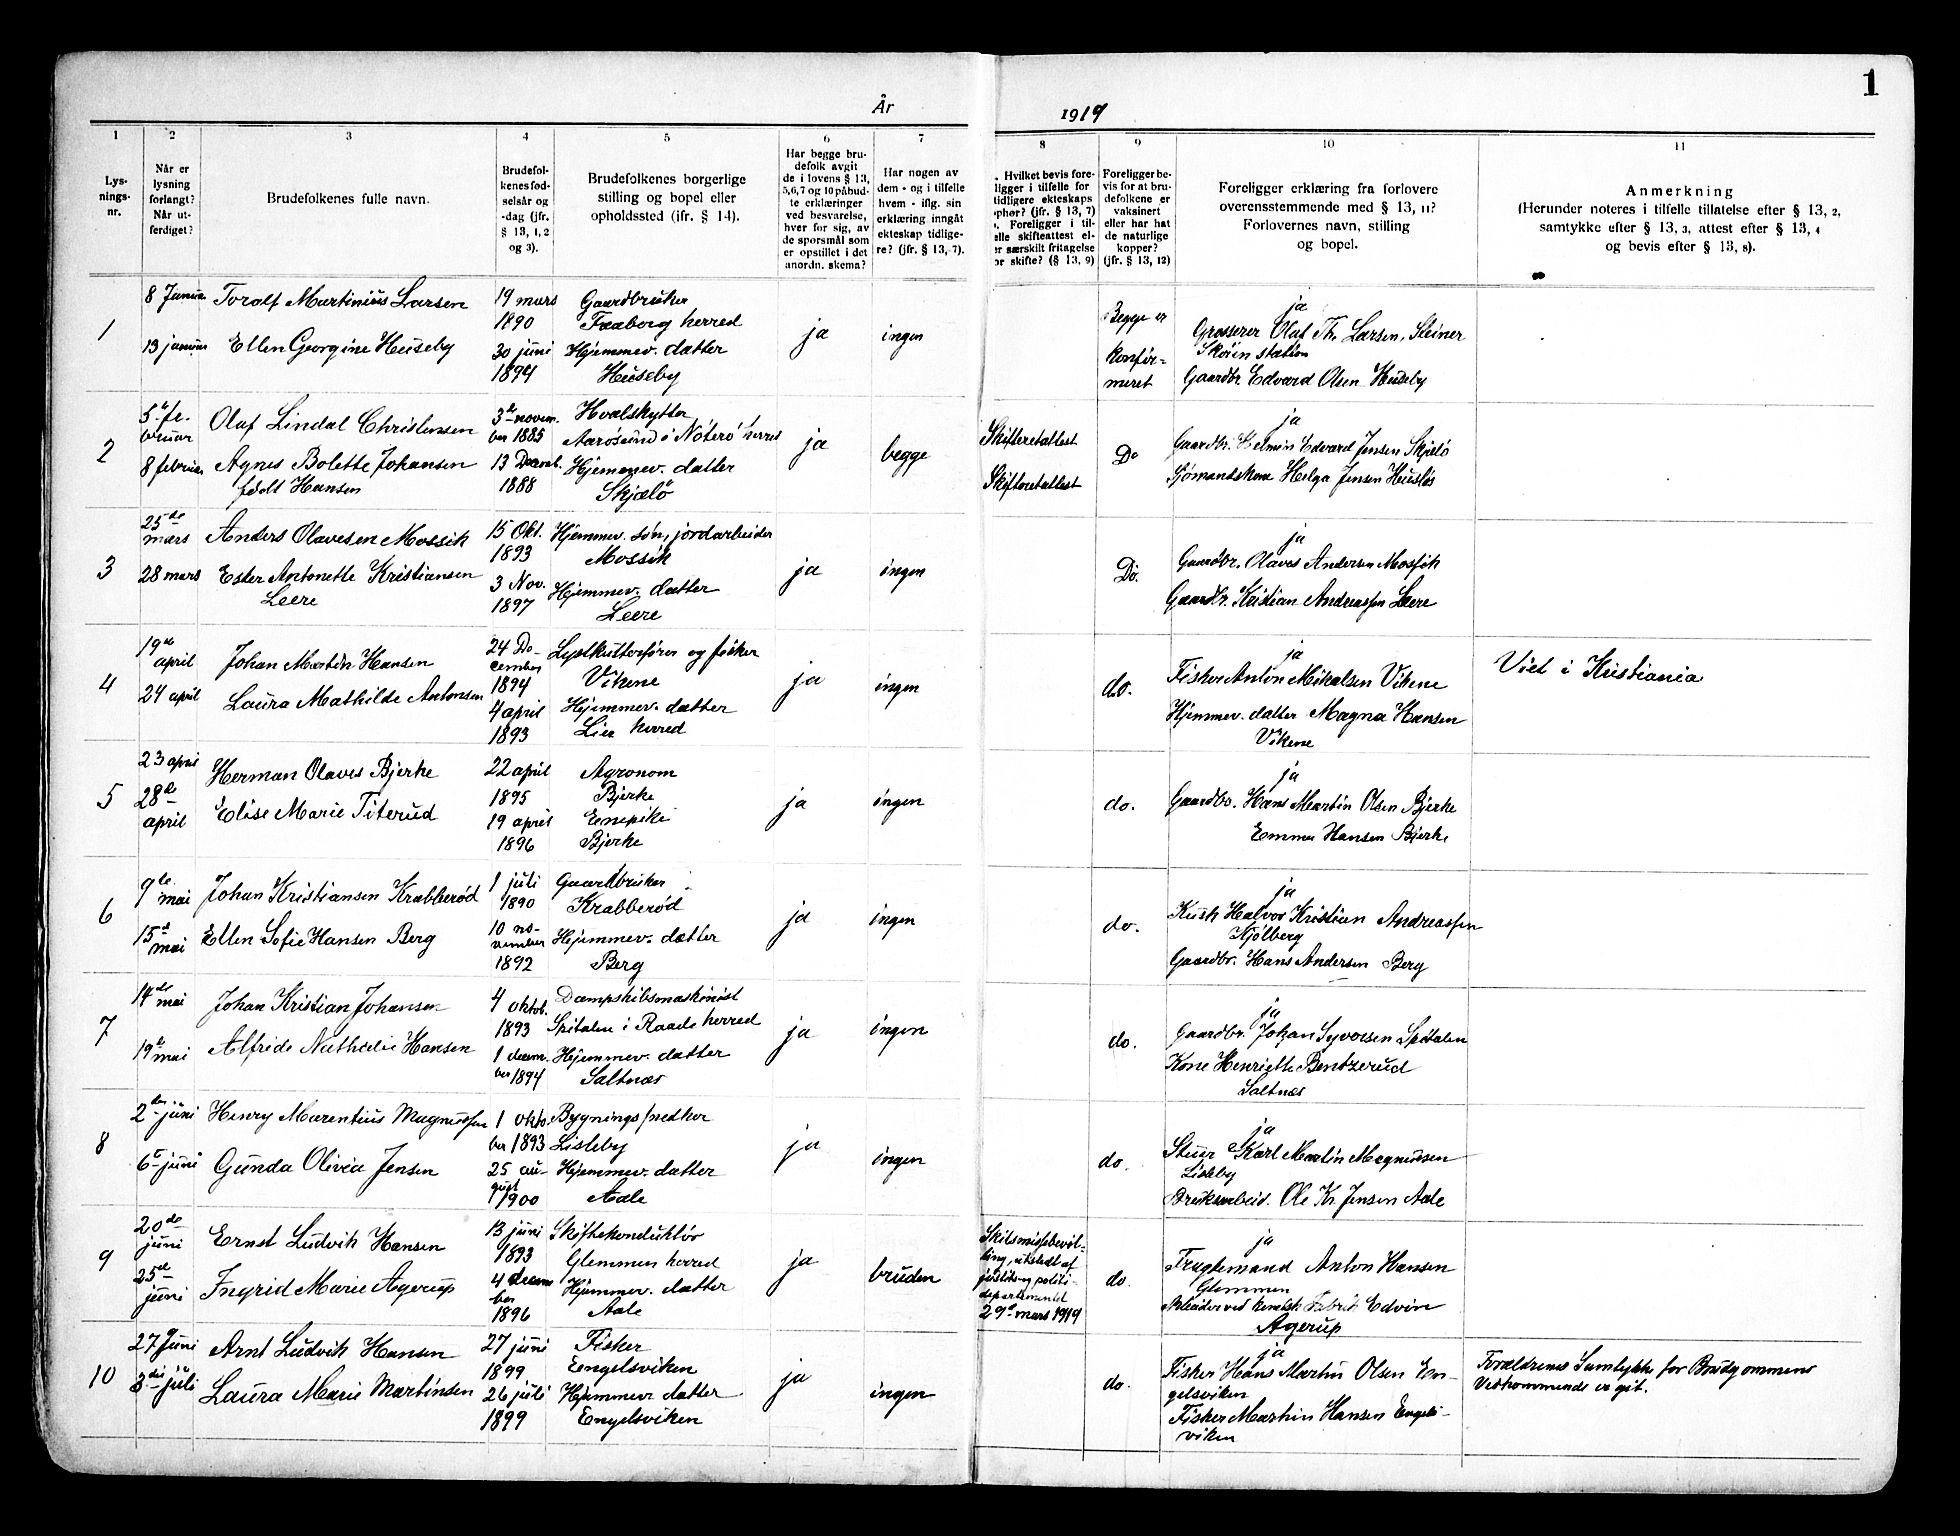 1
År 1919
1 2 3 4 5 6 7 8 9 10 11
Lys-
nings-
nr.
Når er
lysning
forlangt?
Når ut-
ferdiget?
Brudefolkenes fulle navn.
Brudefol-
kenes fød-
selsår og
-dag (jfr.
§ 13, 1, 2
og 3).
Brudefolkenes borgerlige
stilling og bopel eller
opholdssted (ifr. § 14).
Har begge bru-
defolk avgit
de i lovens § 13,
5,6,7 og 10 påbud-
te erklæringer
ved besvarelse,
hver for sig, av
de spørsmål som
er opstillet i det
anordn. skema?
Har nogen av
dem - og i tilfelle
hvem - iflg. sin
erklæring inngåt
ekteskap tidlige-
re? (jfr. § 13, 7).
. Hvilket bevis fore-
ligger i tilfelle for
tidligere ekteskaps
ophør? (jfr. § 13, 7)
. Foreligger i til-
elle skifteattest el-
er særskilt fritagelse
or skifte? (§ 13, 9)
Foreligger be-
vis for at bru-
defolkene er
vaksinert
eller har hat
de naturlige
kopper?
(jfr. § 13, 12)
Foreligger erklæring fra forlovere
overensstemmende med § 13, 11?
Forlovernes navn, stilling
og bopel.
Anmerkning
(Herunder noteres i tilfelle tillatelse efter § 13, 2,
samtykke efter § 13, 3, attest efter § 13, 4
og bevis efter § 13, 8).
1
8 Januar
13 januar
Toralf Martinius Larsen
Ellen Georgine Huseby
19 mars
1890
30 juni
1894
Gaardbruker
Faaberg herred
Hjemmev. datter
Huseby
ja
ingen
Begge er
konfir-
meret
ja
Grosserer Olaf Th. Larsen, Steiner
Skøien station
Gaardbr. Edvard Olsen Huseby
2
5te fe-
bruar
8 februar
Olaf Lindal Christensen
Agnes Bolette Johansen
født Hansen
3de novem-
ber 1885
13 Decemb.
1888
Hvalskytter
Aarøsund i Nøterø herred
Hjemmev. datter
Skjælø
ja
begge
Skifteretattest
Skifteretattest
Do
ja
Gaardbr. Helmin Edvard Jensen Skjælø
Sjømandskone Helga Jensen Husløs
3
25de
mars
28 mars
Anders Olavesen Mossik
Ester Antonette Kristiansen
Leere
15 Okt.
1893
3 Nov.
1897
Hjemmev. søn, jordarbeider
Mossik
Hjemmev. datter
Leere
ja
ingen
Do.
ja
Gaardbr. Olaves Andersen Mossik
Gaardbr. Kristian Andreassen Leere
4
19de
april
24 april
Johan Martin Hansen
Laura Mathilde Antonsen
24 De-
cember
1894
4 april
1893
Lystkutterfører og fisker
Vikene
Hjemmev. datter
Lier herred
ja
ingen
do.
ja
Fisker Anton Mikalsen Vikene
Hjemmev. datter Magna Hansen
Vikene
Viet i Kristiania
5
23 april
28de
april
Herman Olaves Bjerke
Elise Marie Titerud
22 april
1895
19 april
1896
Agronom
Bjerke
Enepike
Bjerke
ja
ingen
do.
ja
Gaardbr. Hans Martin Olsen Bjerke
Emma Hansen Bjerke
6
9de
mai
15de
mai
Johan Kristiansen Krabberød
Ellen Sofie Hansen Berg
1 juli
1890
10 no-
vember
1892
Gaardbruker
Krabberød
Hjemmev. datter
Berg
ja
ingen
do.
ja
Kusk Halvor Kristian Andreassen
Kjølberg
Gaardbr. Hans Andersen Berg
7
14de
mai
19de
mai
Johan Kristian Johansen
Alfride Nathalie Hansen
4 oktob.
1893
1 decem-
ber 1894
Dampskibsmaskinist
Spitalen i Raade herred
Hjemmev. datter
Saltnæs
ja
ingen
do.
ja
Gaardbr. Johan Syversen Spitalen
Kone Henriette Bentzerud
Saltnæs
8
2den juni
6te juni
Henry Marentius Magnussen
Gunda Olivia Jensen
1 okto-
ber 1893
25 au-
gust
1900
Bygningssnedker
Lisleby
Hjemmev. datter
Aale
ja
ingen
do.
ja
Stuer Karl Martin Magnussen
Lisleby
Bruksarbeid. Ole Kr. Jensen Aale
9
20de
juni
25de
juni
Ernst Ludvik Hansen
Ingrid Marie Agerup
13 juni
1893
4 decem
ber
1896
Skiftekonduktør
Glemmen herred
Hjemmev. datter
Aale
ja
bruden
Skilsmissebevil-
ling, utstedt af
justits og politi-
departementet
29de mars 1919
do.
ja
Frugtemand Anton Hansen
Glemmen
Arbeider ved kemisk Fabrik Edvin
Agerup
10
27 Juni
3die juli
Arnt Ludvik Hansen
Laura Marie Martinsen
27 juni
1899
26 juli
1899
Fisker
Engelsviken
Hjemmev datter
Engelsviken
ja
ingen
do.
ja
Fisker Hans Martin Olsen En-
gelsviken
Fisker Martin Hansen Engels-
viken
Forældrenes Samtykke for Brudgommens
Vedkommende er git.